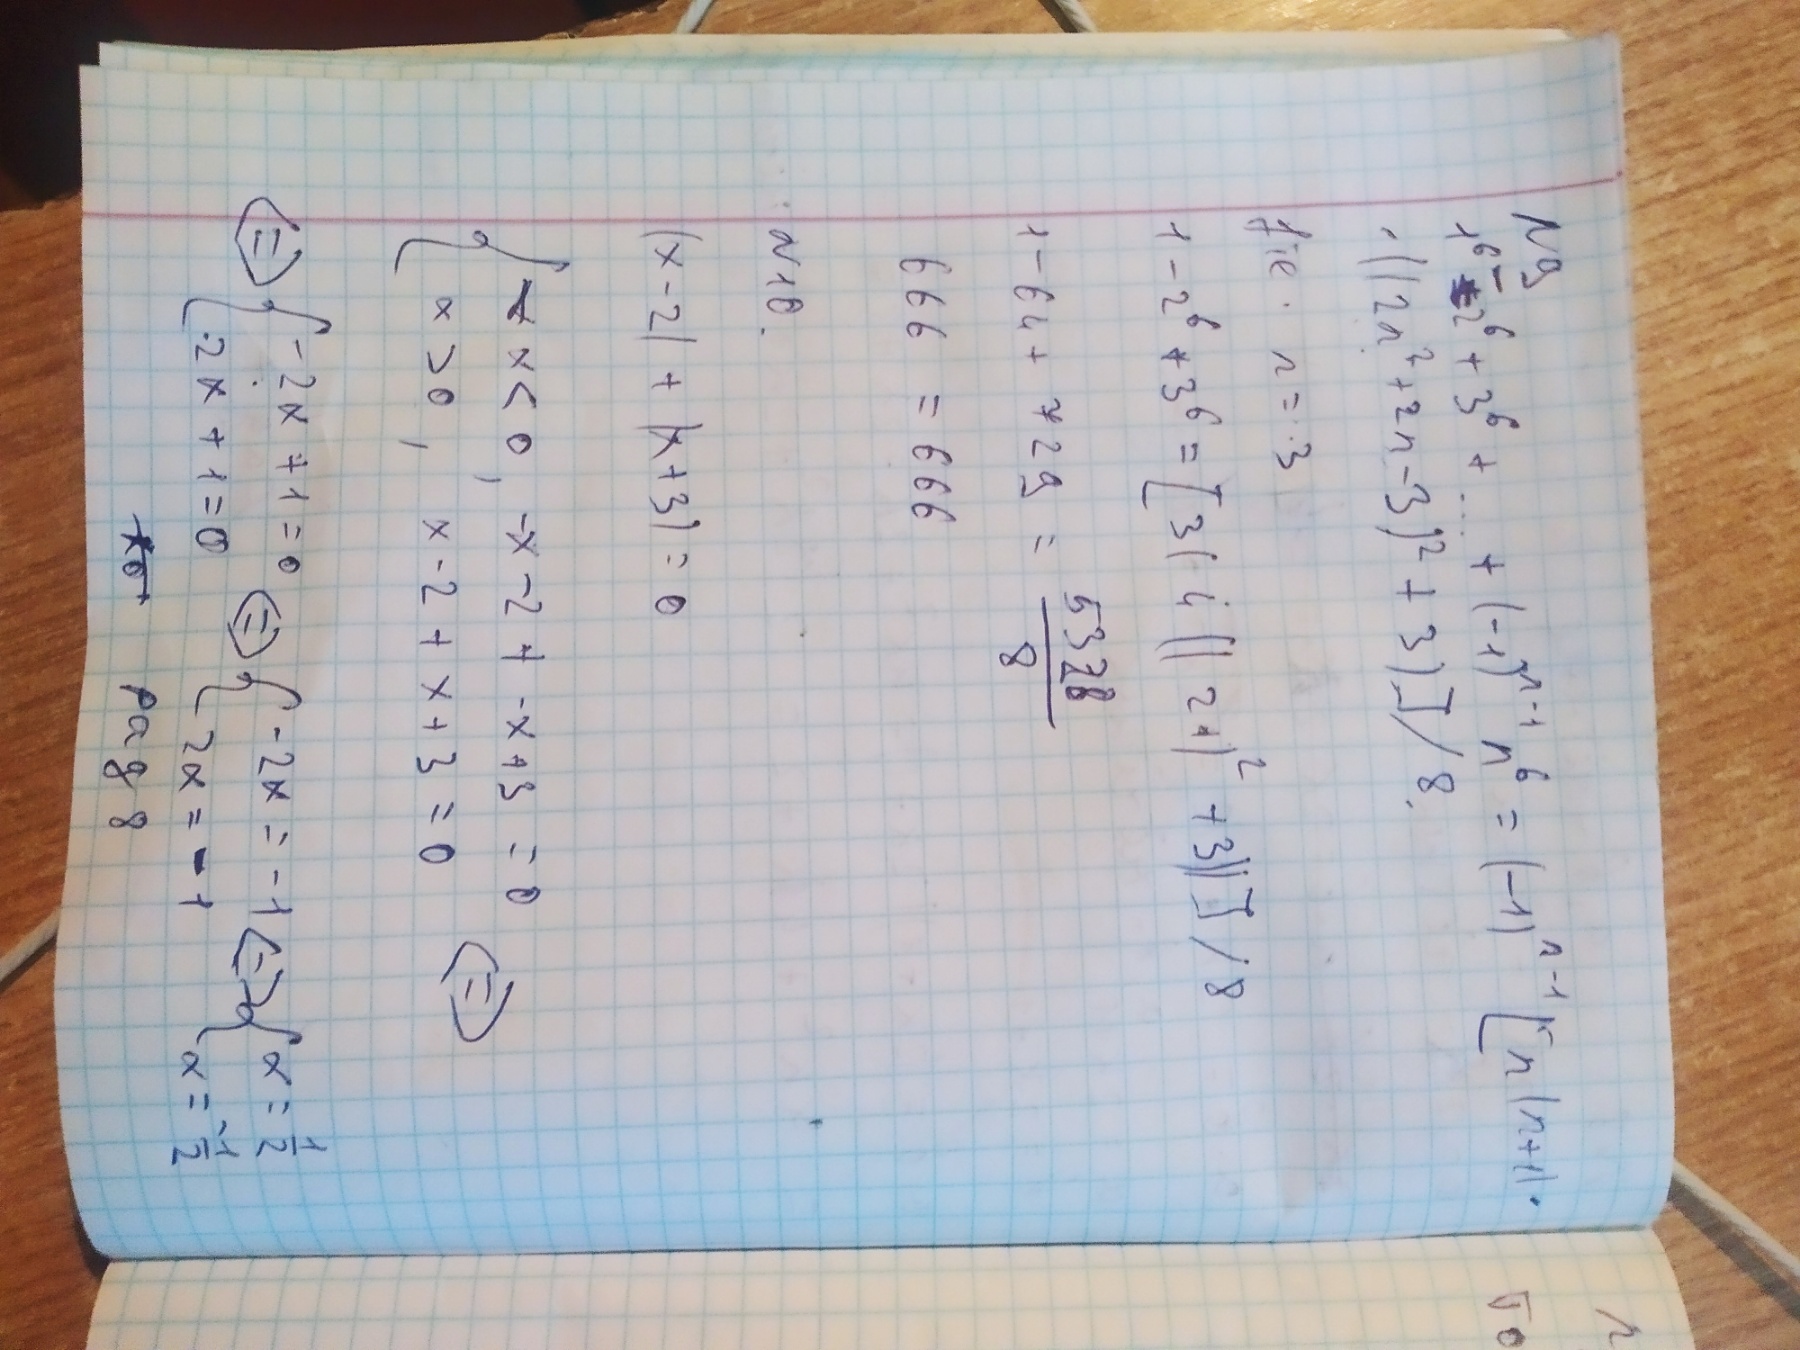 N9
1⁶-2⁶+3⁶+...+(-1)ⁿ⁻¹n⁶=(-1)ⁿ⁻¹[n(n+1)·
·((2n²+2n-3)²+3)]/8.
fie. n=3
1-2⁶+3⁶=[3(4((21)²+3))]/8
1-64+729=5328/8
666=666
N10.
|x-2|+|x+3|=0
{x<0, -x-2+-x+3=0
{x>0, x-2+x+3=0 <=>
<=> {-2x+1=0 <=> {-2x=-1 <=> {x=1/2
{2x+1=0 {2x=-1 {x=-1/2
pag 8